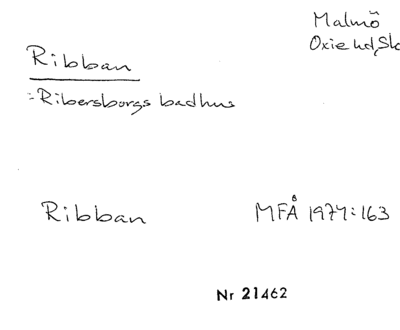 Malmö
Oxie hd, Sk
Ribban
= Ribersborgs badhus
Ribban MFÅ 1974:163
Nr 21462